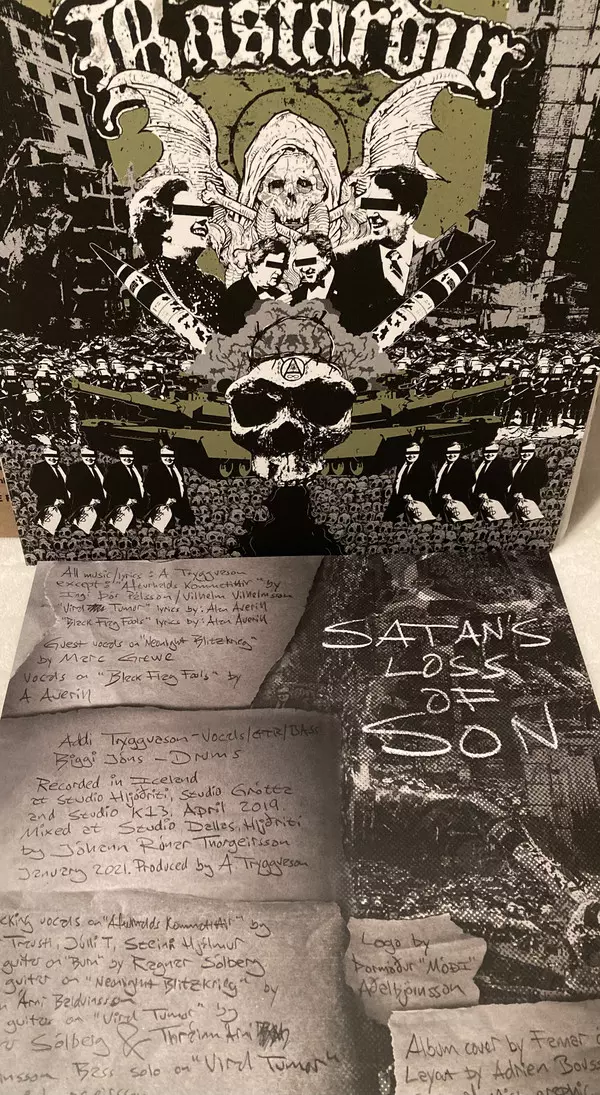 Bastarður
All music/lyrics : A Tryggvason
except : "Afturhalds Kommatittir" by
Ingi Þór Pálsson/Vilhelm Vilhelmsson
"Viral Tumor" lyrics by : Alan Averill
"Black Flag Fools" lyrics by : Alan Averill
Guest vocals on "Neonight Blitzkrieg"
by Marc Grewe
Vocals on "Black Flag Fools" by
A Averill
SATAN'S
LOSS
OF
SON
Addi Tryggvason - Vocals/GTR/BASS
Biggi Jóns - DRUMS
Recorded in Iceland
at Studio Hljóðriti, Studio Grótta
and Studio K13, April 2019.
Mixed at Studio Dallas, Hljóðriti
by Jóhann Rúnar Thorgeirsson
January 2021. Produced by A Tryggvason
cking vocals on "Afturhalds Kommatittir" by
Trausti, Júlli T, Steina Hjálmur
guitar on "Burn" by Ragnar Sólberg
guitar on "Neonight Blitzkrieg" by
Arni Baldvinsson
guitar on "Viral Tumor" by
Sólberg & Thráinn Arni
nsson Bass solo on "Viral Tumor"
Logo by
Þormóður "MÓÐI"
Aðalbjörnsson
Album cover by
Layout by Adrien